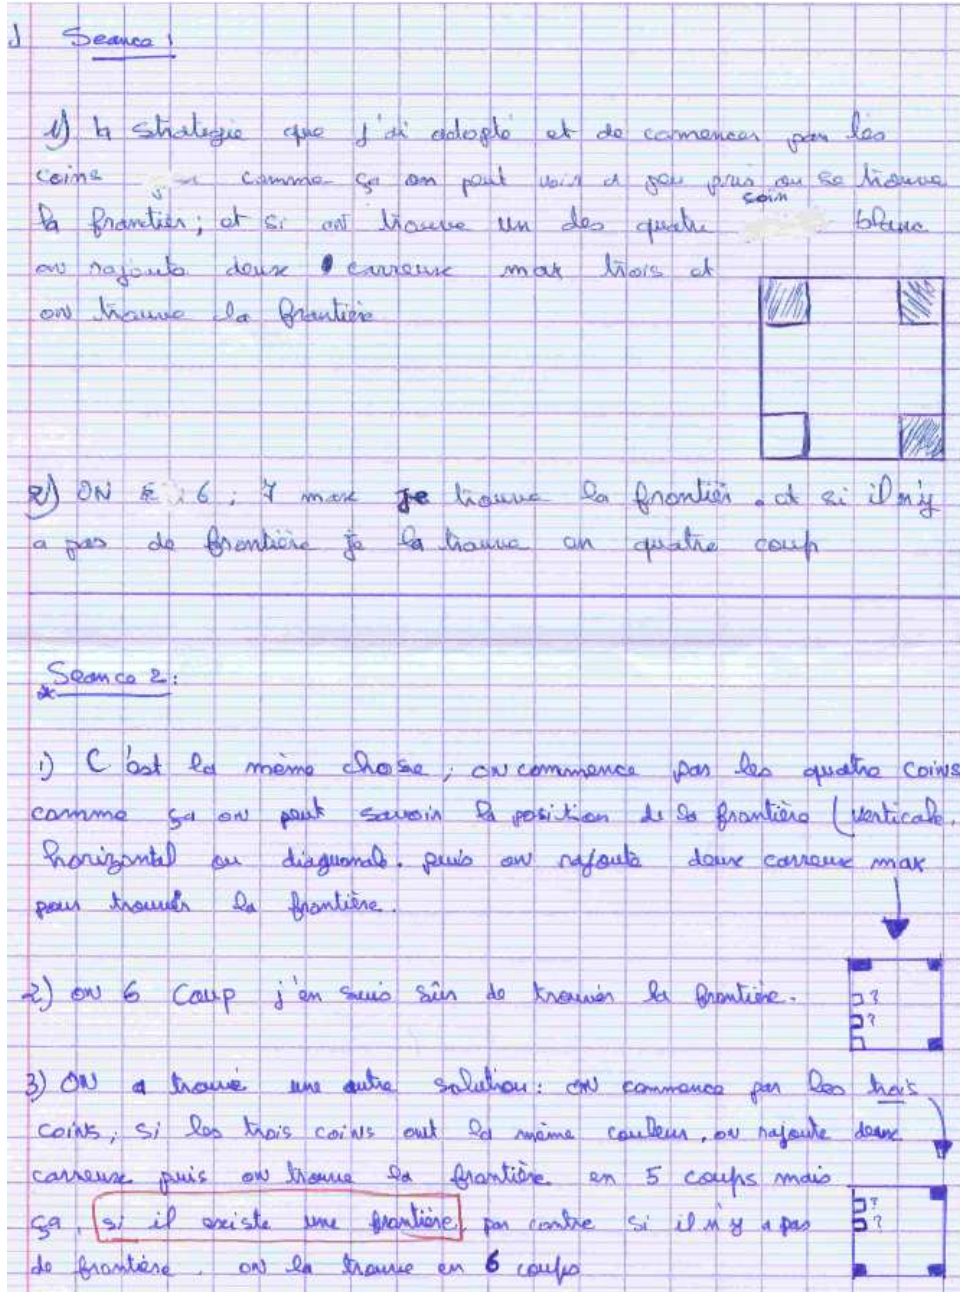 Seance 1
1) la strategie que j'ai adopté et de comencer par les
coins comme ça on peut voir a peu pris ou se trouve
la frantier; et si on trouve un des quatre soin blanc
on rajoute deux carreux max trois et
on trouve la frantière
2) ON 6, 7 max je trouve la frontier. et si il n'y
a pas de frontière je la trouve an quatre coup
Seance 2:
1) C'est la même chose, on commence par les quatre coins
comme ça on peut savoir la position de la frontière (verticale,
horizontal ou diaguonale. puis on rajoute deux carreux max
pour trouver la frontière.
2) on 6 Coup j'en suis sûr de trouver la frontière.
?
?
3) ON a trouvé une autre solution: on commence par les trois
coins, si les trois coins ont la même couleur, on rajoute deux
carreux puis on trouve la frantière en 5 coups mais
ça, si il existe une frantière, par contre si il n'y a pas
?
?
de frantière. on la trouve en 6 coups